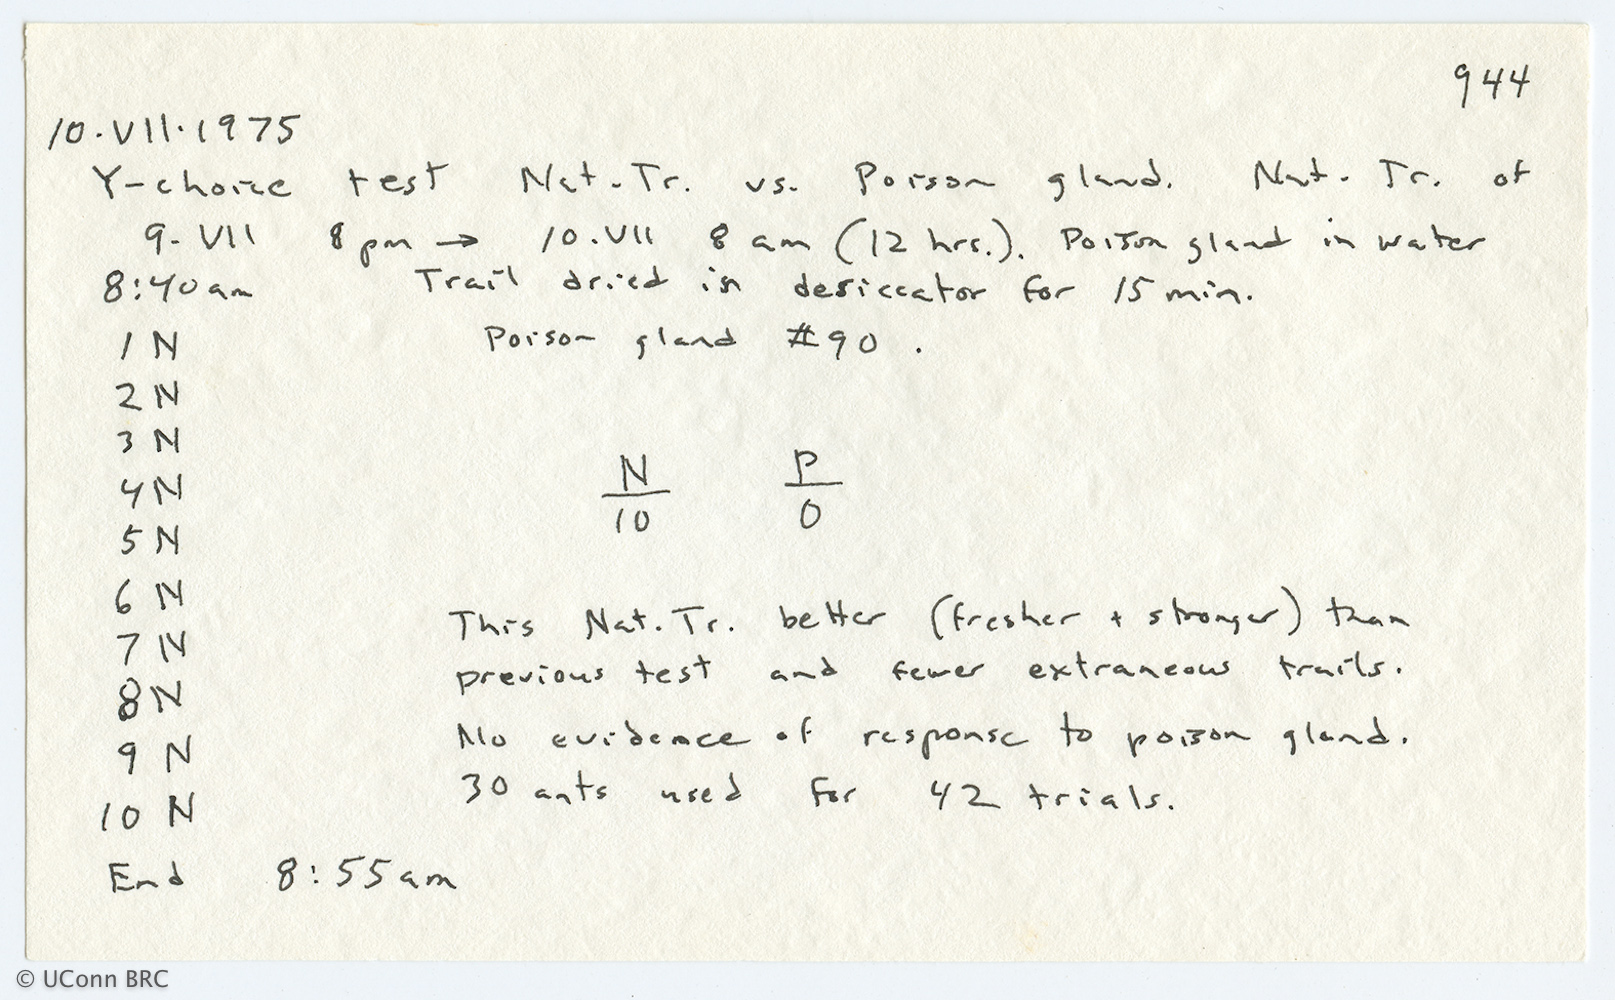 944
10.VII.1975
Y-choice test Nat.Tr. vs. Poison gland. Nat. Tr. of
9-VII 8pm → 10.VII 8am (12 hrs.). Poison gland in water
8:40am Trail dried in desiccator for 15 min.
1 N Poison gland #90.
2 N
3 N
4 N
5 N
6 N
7 N
8 N
9 N
10 N
End 8:55am
N P
10 0
This Nat.Tr. better (fresher + stronger) than
previous test and fewer extraneous trails.
No evidence of response to poison gland.
30 ants used for 42 trials.
© UConn BRC